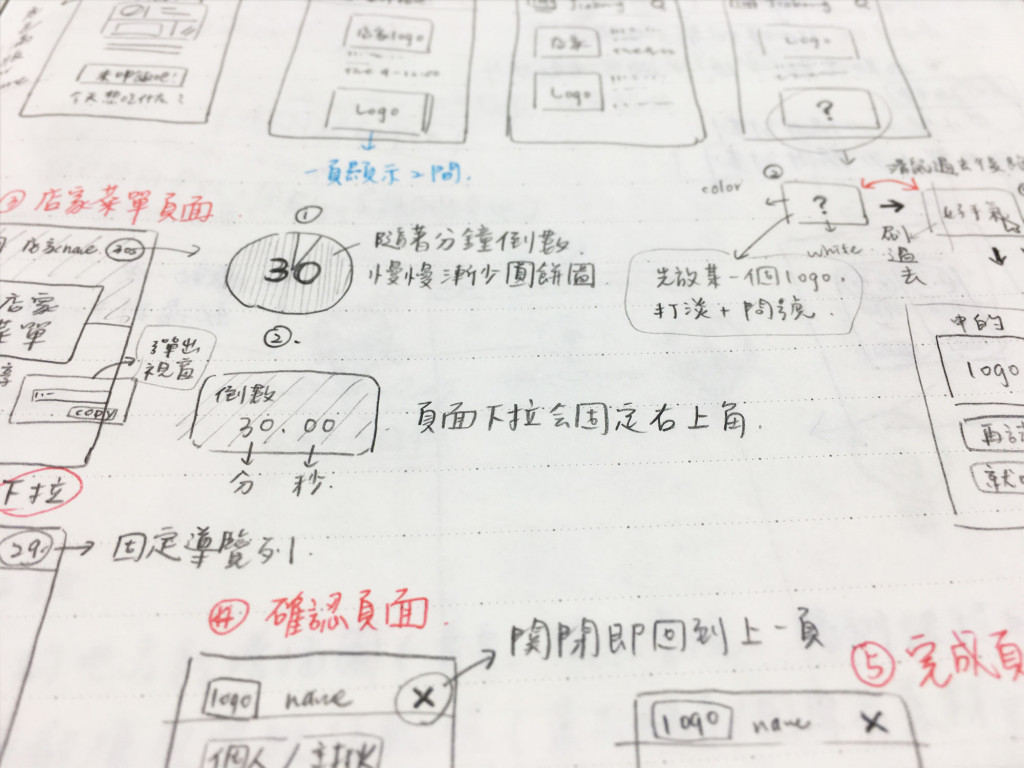 今天想吃什么?
店家logo
Logo
店家
Logo
Logo
?
一頁顯示2間.
③ 店家菜單頁面
店家name 30s
店家
菜單
彈出
視窗
copy
下拉
①
30
隨著分鐘倒數.
慢慢漸少圓餅圖
②.
倒數
30.00
分 秒.
頁面下拉会固定右上角.
color
②
?
white
刷
過
去
好手氣
先放某一個logo.
打淡+問號.
中的
logo
29.
固定導覽列.
④ 確認頁面.
logo name X
關閉即回到上一頁
個人/
⑤ 完成頁
logo name X